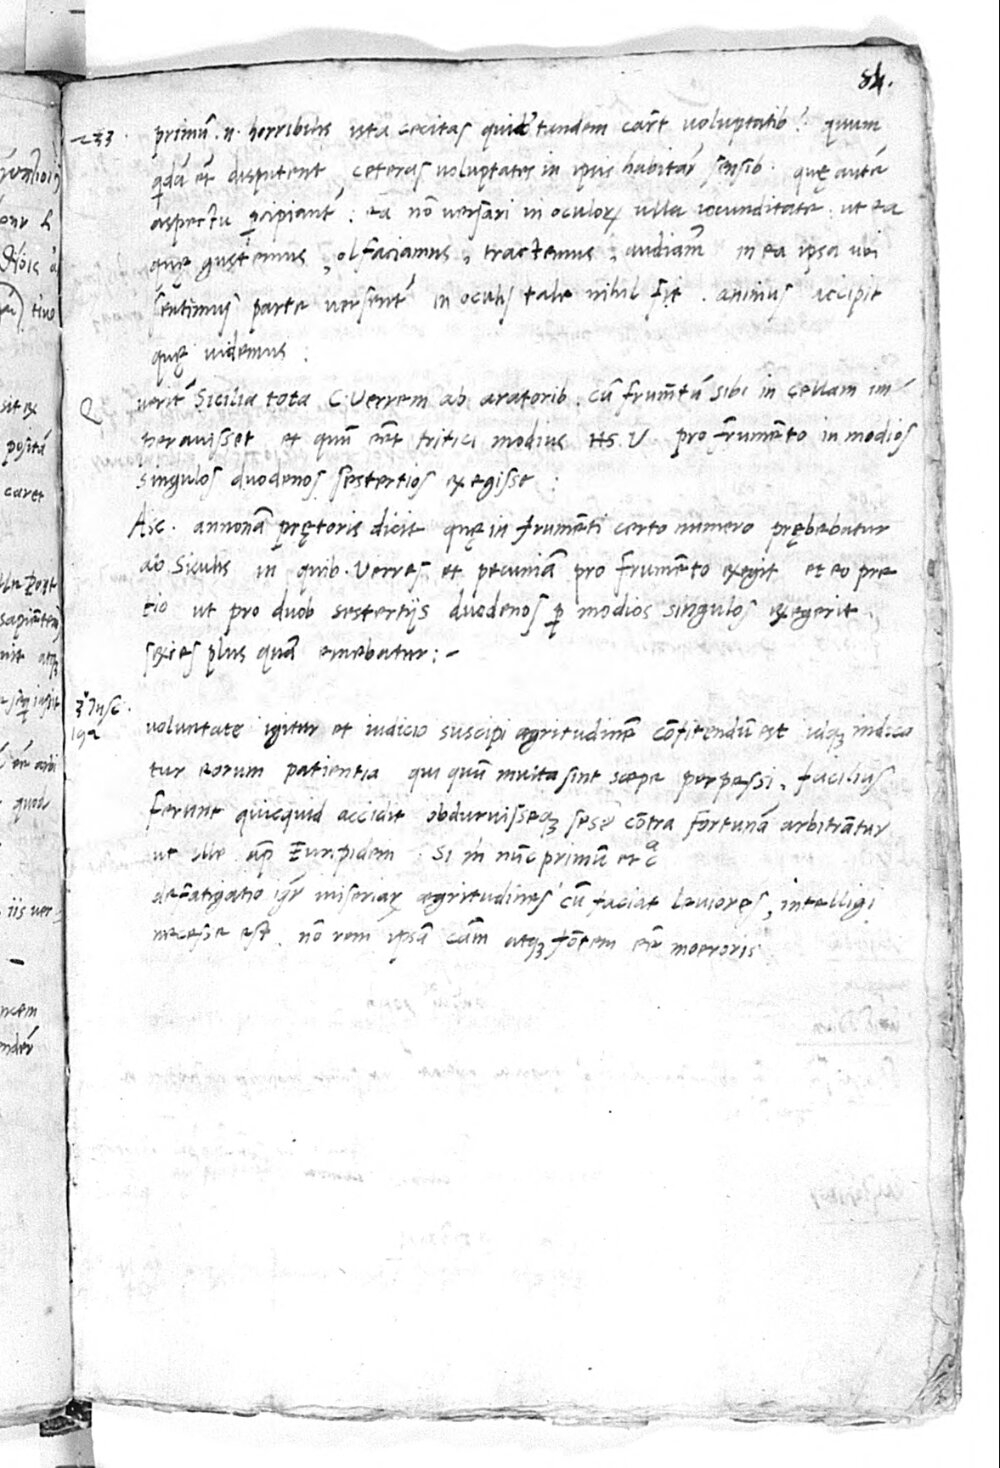 84.
233. primū .n. horribilis ista cecitas quib' tandem carēt voluptatib'? quum
qdā ēt disputent, ceteras voluptates in ipsis habitāʳ sensib. quę autē
aspectu pcipiantʳ: ea nō versari in oculoꝝ ulla iocunditate. ut ea
quę gustemus, olfaciamus, tractemus, audiam̄ in ea ipsa ubi
sentimus parte versentʳ in oculis tale nihil fit. animus accipit
quę uidemus:
Q verit' Sicilia tota C. Verrem ab aratorib. cū frum̄tū sibi in cellam im
peravisset et quū eēt tritici modius HS. V pro frumēto in modios
singulos duodenos sestertios exegisse:
Asc. annonā prętoris dicit quę in frumēti certo numero prębebatur
ab Siculis in quib. Verres et pecuniā pro frumēto exegit et eo pre
tio ut pro duob sestertijs duodenos ꝑ modios singulos exegerit
sexies plus quā emebatur:-
3° Tusc.
192 voluntate igitur et iudicio suscipi ægritudinē cōfitendū est idqꝫ indica
tur eorum patientia qui quū multa sint sæpe perpessi, facilius
ferunt quicquid accidit obduruisseqꝫ sese cōtra fortunā arbitrātur
ut ille ap̄ Euripidem. Si m̄ nūc primū et cᵃ
defatigatio igʳ miseriaꝝ ægritudines cū faciat leviores, intelligi
necesse est. nō rem ipsā cām̄ atqꝫ fōtem eē moeroris
sit ex
positā
caret
tive
quod
iis ver